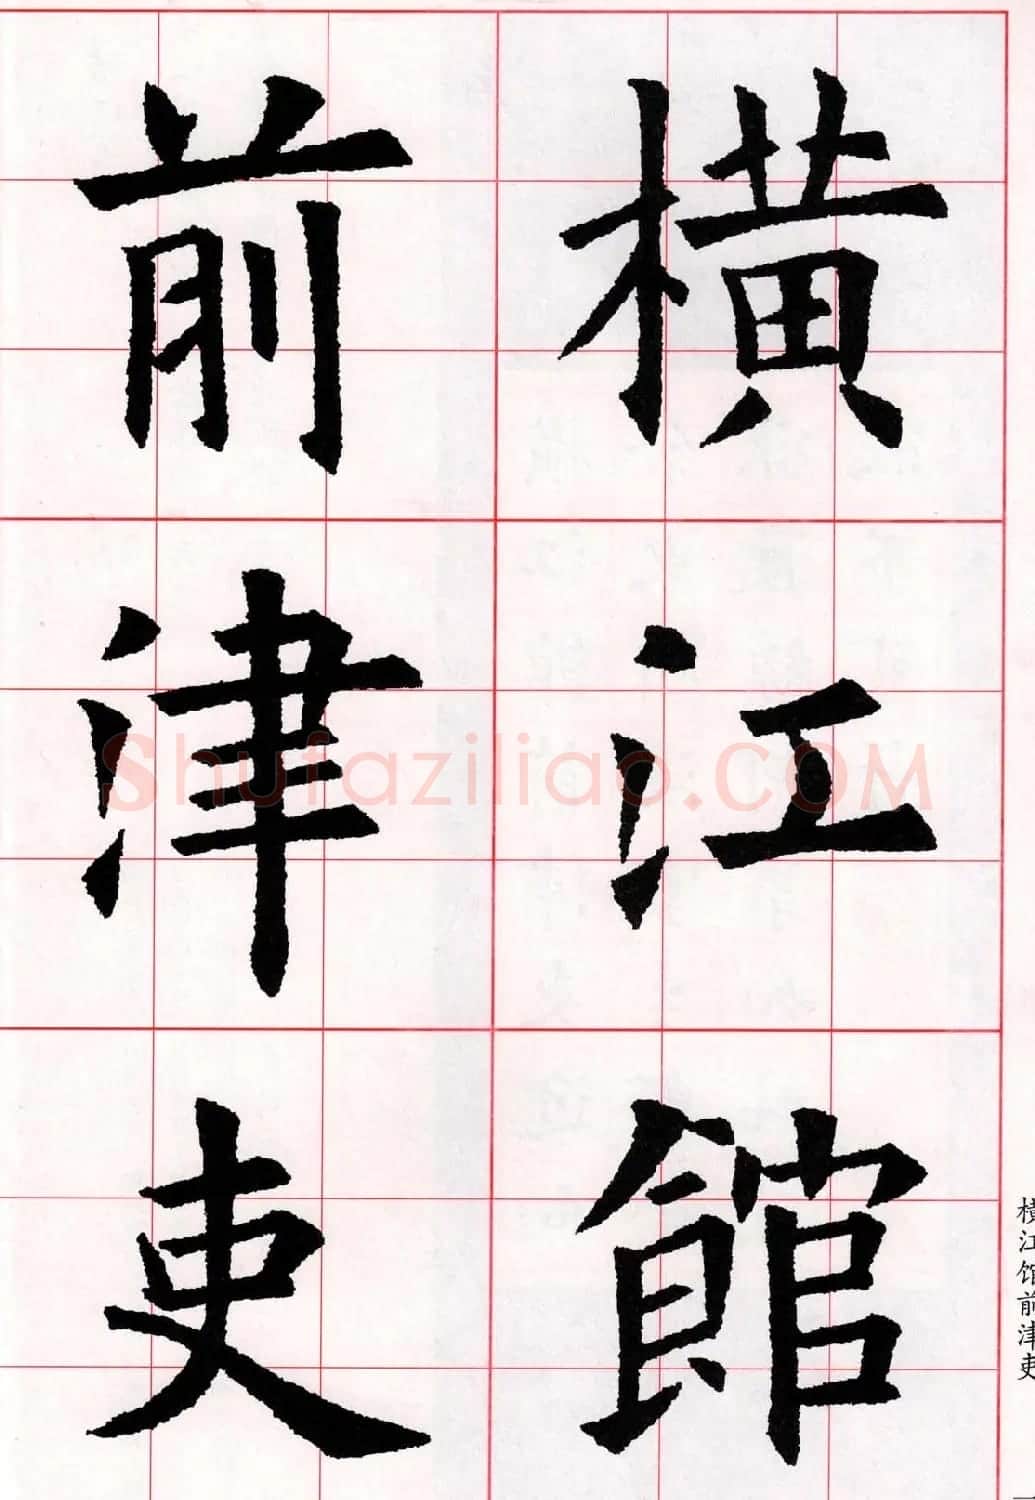 橫江館
前津吏
横江馆前津吏
Shufaziliao.COM